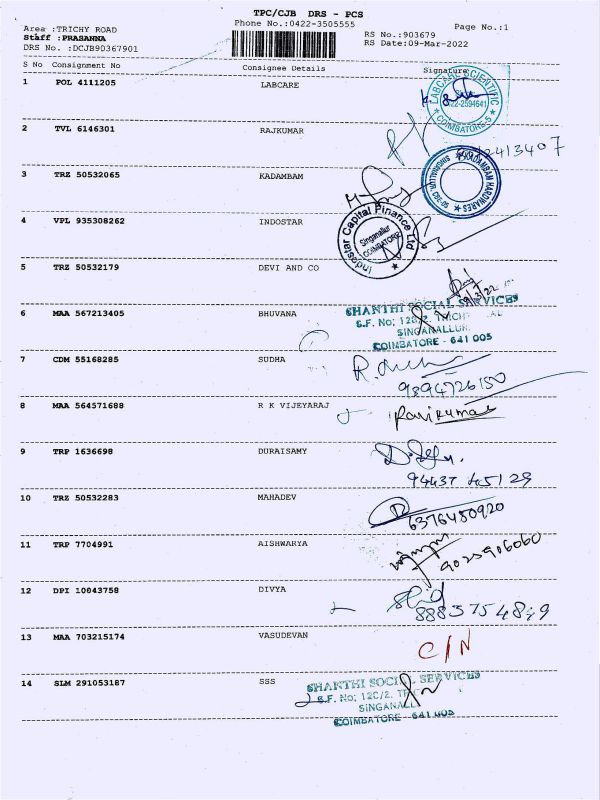 TPC/CJB DRS - PCS
Area :TRICHY ROAD
Phone No.:0422-3505555
Page No.:1
Staff :PRASANNA
RS No.:903679
DRS No. :DCJB90367901
RS Date:09-Mar-2022
S No Consignment No Consignee Details Signature
1 POL 4111205 LABCARE
LABCARE SCIENTIFIC
0422-2594641
COIMBATORE-5
2 TVL 6146301 RAJKUMAR
2413407
3 TRZ 50532065 KADAMBAM
KADAMBAN HARDWARES
4 VPL 935308262 INDOSTAR
Indostar Capital Finance Ltd
Singanallur
COIMBATORE
5 TRZ 50532179 DEVI AND CO
6 MAA 567213405 BHUVANA
SHANTHI SOCIAL SERVICES
S.F. No; 12C/2. TRICHY
SINGANALLUR.
COIMBATORE - 641 005
7 CDM 55168285 SUDHA
9894726150
8 MAA 564571688 R K VIJEYARAJ
Ravikumar
9 TRP 1636698 DURAISAMY
94437 45129
10 TRZ 50532283 MAHADEV
6376450920
11 TRP 7704991 AISHWARYA
9025906060
12 DPI 10043758 DIVYA
13 MAA 703215174 VASUDEVAN
C/N
14 SLM 291053187 SSS
SHANTHI SOCIAL SERVICES
S.F. No; 12C/2.
SINGANALL
COIMBATORE - 641 005